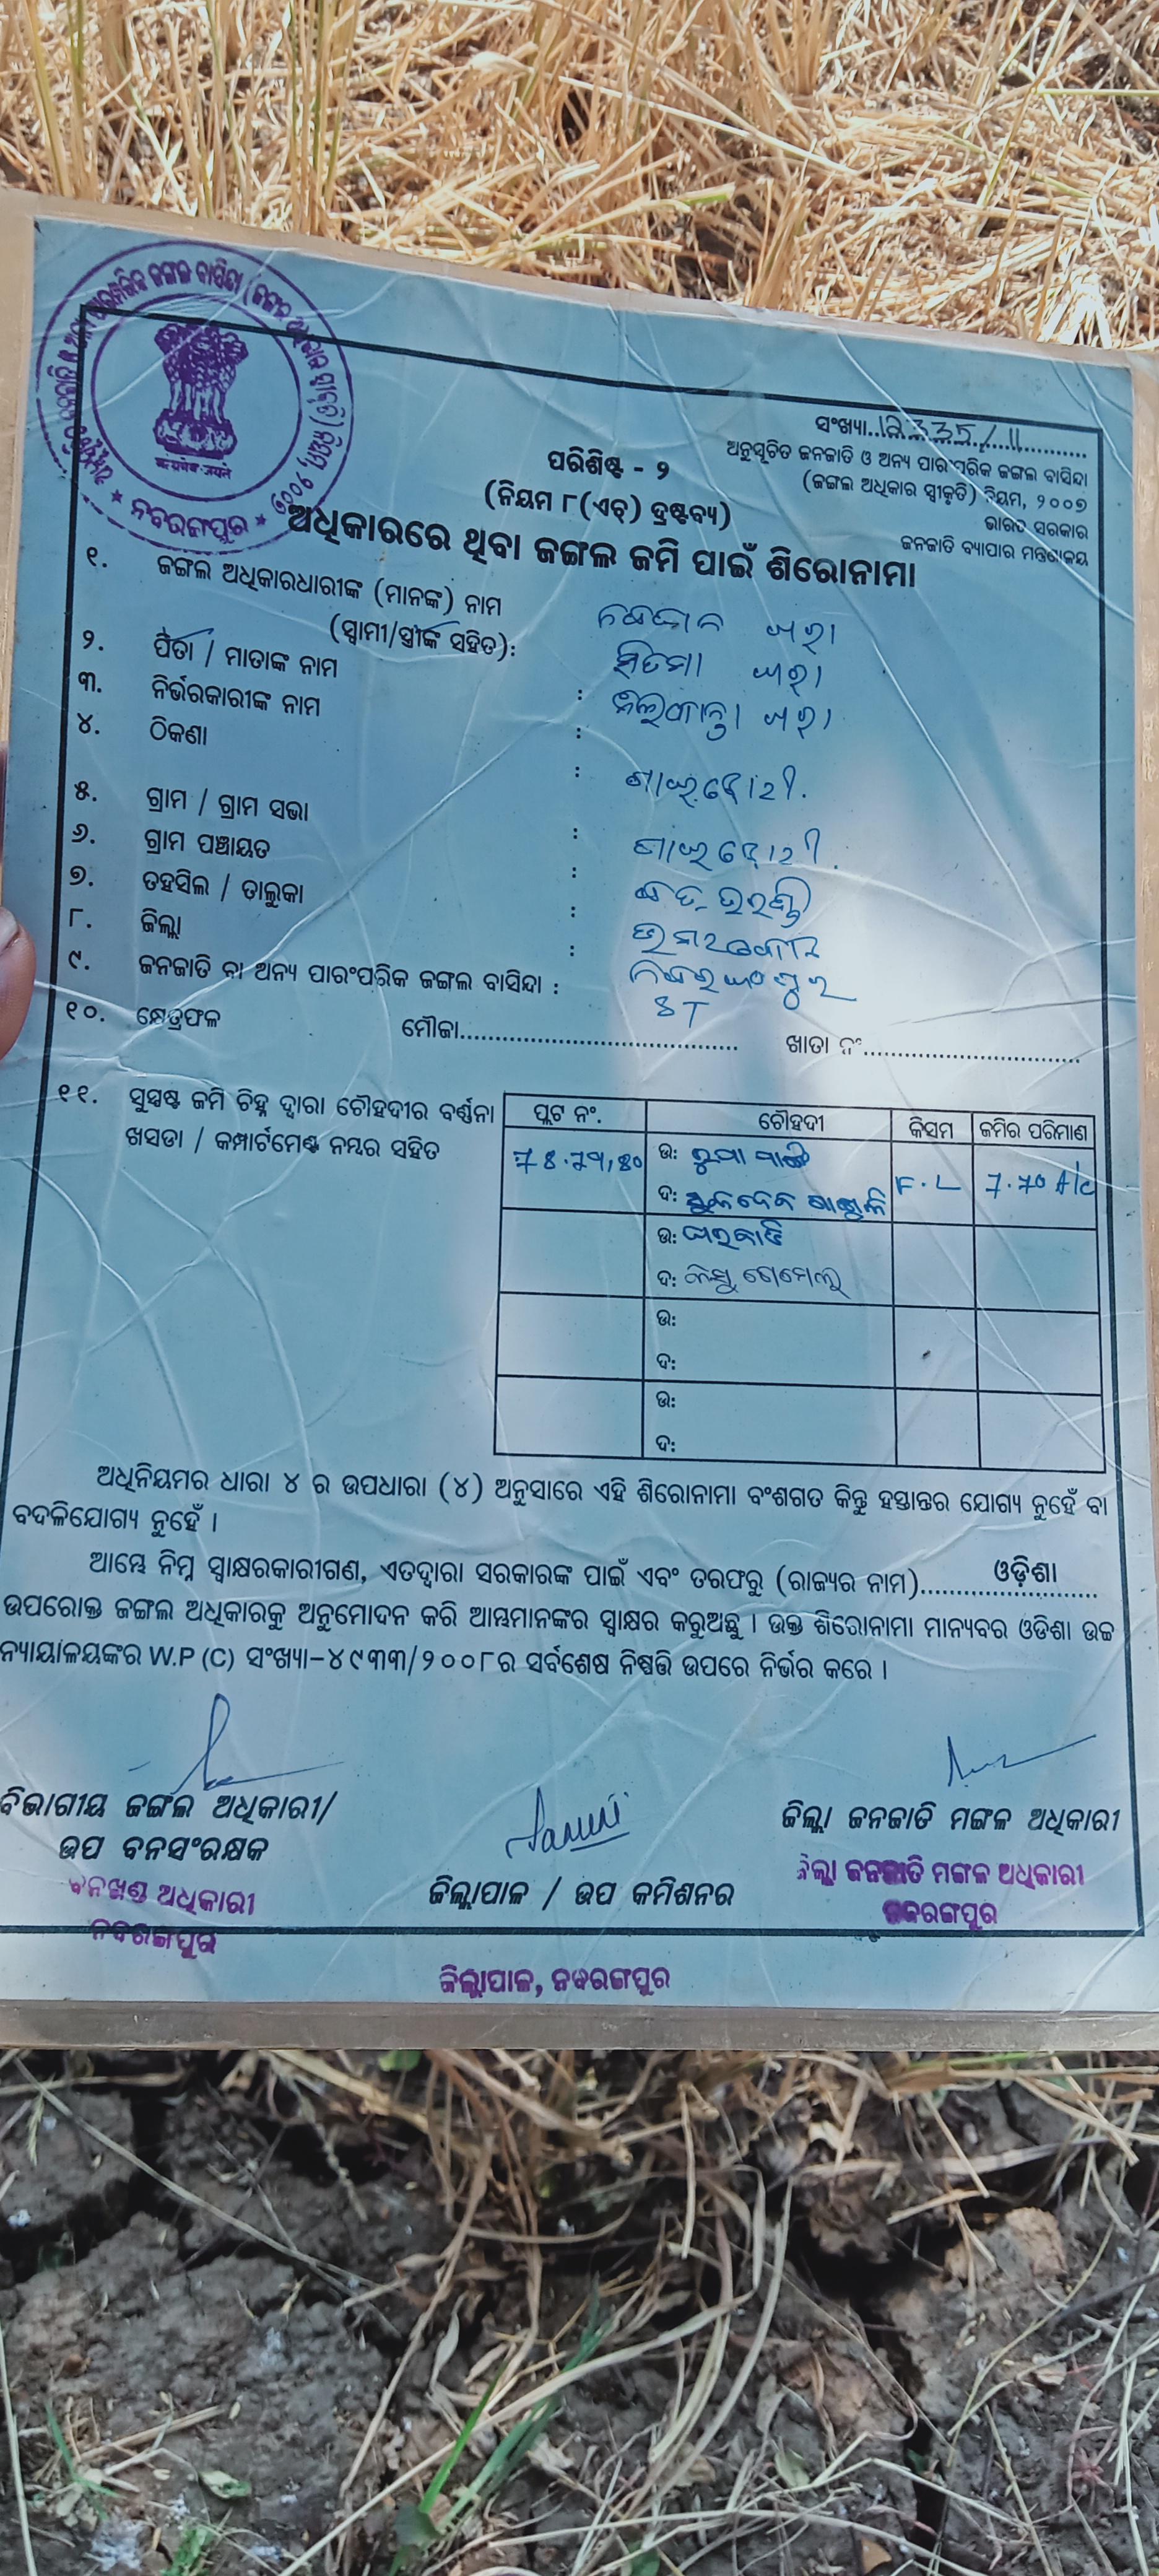 ସଂଖ୍ୟା..12335/11
ଅନୁସୂଚିତ ଜନଜାତି ଓ ଅନ୍ୟ ପାରଂପରିକ ଜଙ୍ଗଲ ବାସିନ୍ଦା
(ଜଙ୍ଗଲ ଅଧିକାର ସ୍ୱୀକୃତି) ନିୟମ, ୨୦୦୭
ଭାରତ ସରକାର
ଜନଜାତି ବ୍ୟାପାର ମନ୍ତ୍ରଣାଳୟ
ସତ୍ୟମେବ ଜୟତେ
ନବରଙ୍ଗପୁର
ପରିଶିଷ୍ଟ - ୨
(ନିୟମ ୮(ଏଚ୍) ଦ୍ରଷ୍ଟବ୍ୟ)
ଅଧିକାରରେ ଥିବା ଜଙ୍ଗଲ ଜମି ପାଇଁ ଶିରୋନାମା
୧. ଜଙ୍ଗଲ ଅଧିକାରଧାରୀଙ୍କ (ମାନଙ୍କ) ନାମ
(ସ୍ୱାମୀ/ସ୍ତ୍ରୀଙ୍କ ସହିତ):
୨. ପିତା / ମାତାଙ୍କ ନାମ :
୩. ନିର୍ଭରକାରୀଙ୍କ ନାମ :
୪. ଠିକଣା :
୫. ଗ୍ରାମ / ଗ୍ରାମ ସଭା :
୬. ଗ୍ରାମ ପଞ୍ଚାୟତ :
୭. ତହସିଲ / ତାଲୁକା : ଉମରକୋଟ
୮. ଜିଲ୍ଲା : ନବରଙ୍ଗପୁର
୯. ଜନଜାତି ବା ଅନ୍ୟ ପାରଂପରିକ ଜଙ୍ଗଲ ବାସିନ୍ଦା : ST
୧୦. କ୍ଷେତ୍ରଫଳ ମୌଜା........ ଖାତା ନଂ........
୧୧. ସୁସ୍ପଷ୍ଟ ଜମି ଚିହ୍ନ ଦ୍ୱାରା ଚୌହଦୀର ବର୍ଣ୍ଣନା
ଖସଡା / କମ୍ପାର୍ଟମେଣ୍ଟ ନମ୍ବର ସହିତ
ପ୍ଲଟ ନଂ. ଚୌହଦୀ କିସମ ଜମିର ପରିମାଣ
ଉ: F.L 7.70 A/c
ଦ:
ଉ:
ଦ:
ଉ:
ଦ:
ଉ:
ଦ:
ଅଧିନିୟମର ଧାରା ୪ ର ଉପଧାରା (୪) ଅନୁସାରେ ଏହି ଶିରୋନାମା ବଂଶଗତ କିନ୍ତୁ ହସ୍ତାନ୍ତର ଯୋଗ୍ୟ ନୁହେଁ ବା
ବଦଳିଯୋଗ୍ୟ ନୁହେଁ ।
ଆମ୍ଭେ ନିମ୍ନ ସ୍ୱାକ୍ଷରକାରୀଗଣ, ଏତଦ୍ୱାରା ସରକାରଙ୍କ ପାଇଁ ଏବଂ ତରଫରୁ (ରାଜ୍ୟର ନାମ)........ଓଡ଼ିଶା........
ଉପରୋକ୍ତ ଜଙ୍ଗଲ ଅଧିକାରକୁ ଅନୁମୋଦନ କରି ଆମ୍ଭମାନଙ୍କର ସ୍ୱାକ୍ଷର କରୁଅଛୁ । ଉକ୍ତ ଶିରୋନାମା ମାନ୍ୟବର ଓଡିଶା ଉଚ୍ଚ
ନ୍ୟାୟାଳୟଙ୍କର W.P (C) ସଂଖ୍ୟା-୪୯୩୩/୨୦୦୮ର ସର୍ବଶେଷ ନିଷ୍ପତ୍ତି ଉପରେ ନିର୍ଭର କରେ ।
ବିଭାଗୀୟ ଜଙ୍ଗଲ ଅଧିକାରୀ/
ଉପ ବନସଂରକ୍ଷକ
ବନଖଣ୍ଡ ଅଧିକାରୀ
ନବରଙ୍ଗପୁର
ଜିଲ୍ଲାପାଳ / ଉପ କମିଶନର
ଜିଲ୍ଲାପାଳ, ନବରଙ୍ଗପୁର
ଜିଲ୍ଲା ଜନଜାତି ମଙ୍ଗଳ ଅଧିକାରୀ
ଜିଲ୍ଲା ଜନଜାତି ମଙ୍ଗଳ ଅଧିକାରୀ
ନବରଙ୍ଗପୁର